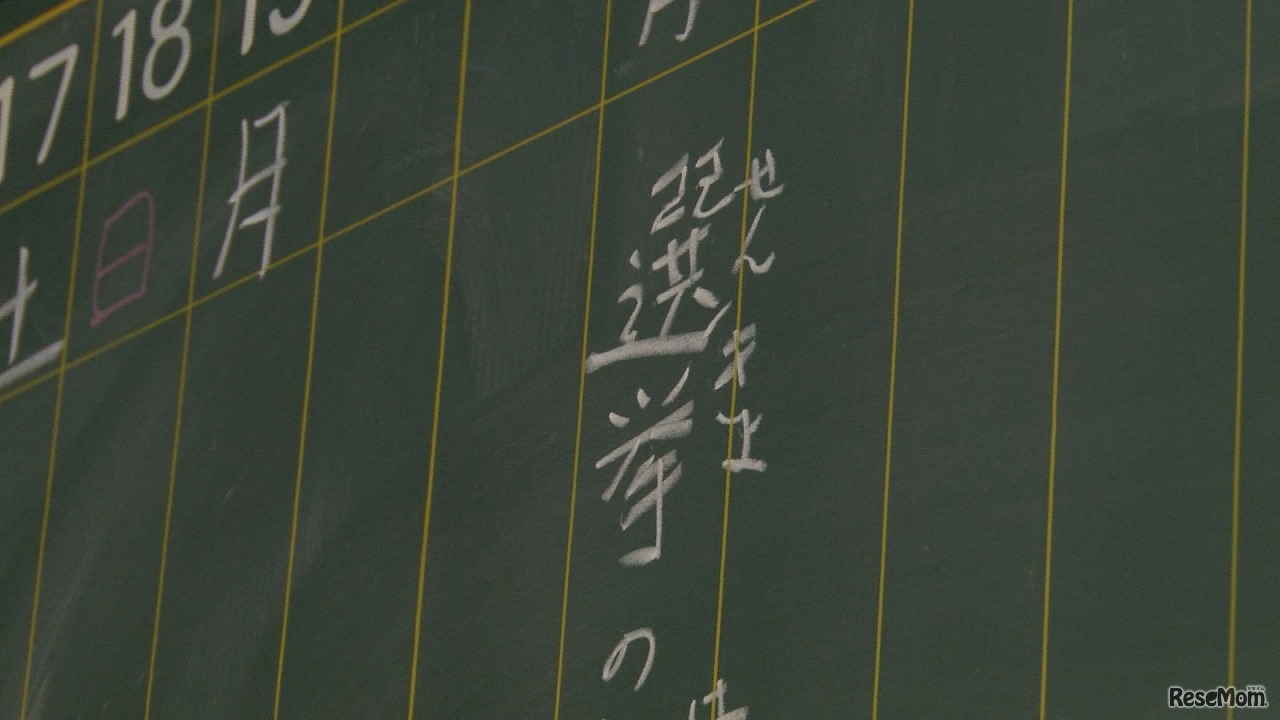 17 18
土 日 月
選挙の
せんきょ
ReseMom